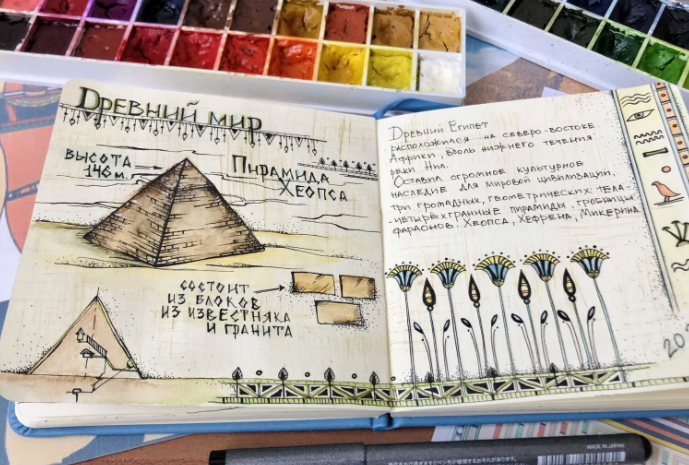 Древний мир
высота
146 м.
Пирамида
Хеопса
состоит
из блоков
из известняка
и гранита
Древний Египет
расположился на северо-востоке
Африки, вдоль нижнего течения
реки Нил.
Оставил огромное культурное
наследие для мировой цивилизации.
Три громадных, геометрических тела -
-четырехгранные пирамиды, гробницы
фараонов: Хеопса, Хефрена, Микерина.
20
MADE IN JAPAN